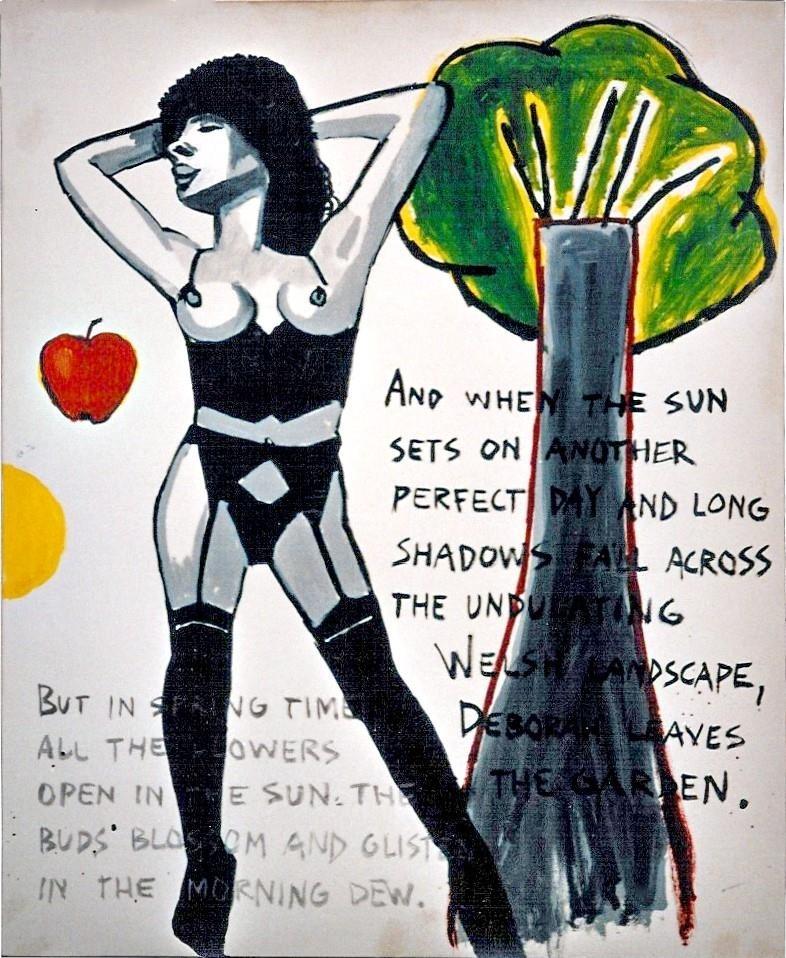 AND WHEN THE SUN
SETS ON ANOTHER
PERFECT DAY AND LONG
SHADOWS FALL ACROSS
THE UNDULATING
WELSH LANDSCAPE,
DEBORAH LEAVES
THE GARDEN.
BUT IN SPRING TIME
ALL THE FLOWERS
OPEN IN THE SUN. THE
BUDS BLOSSOM AND GLISTEN
IN THE MORNING DEW.